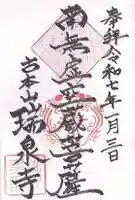 奉拝 令和七年一月三日
南無虚空蔵菩薩
岩本山 瑞泉寺